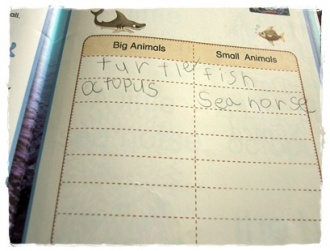 Big Animals Small Animals
turtle fish
octopus Seahorse